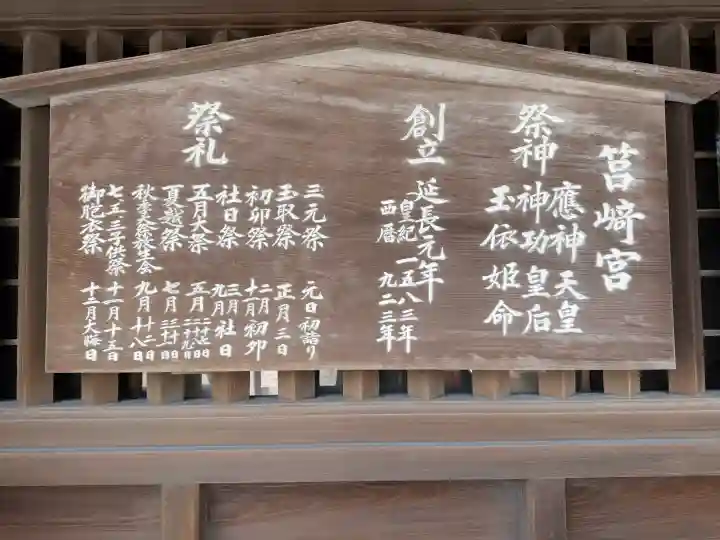 筥崎宮
祭神
應神天皇
神功皇后
玉依姫命
創立
延長元年
皇紀 一五八三年
西暦 九二三年
祭礼
三元祭 元日初詣り
玉取祭 正月三日
初卯祭 二月 十一月 初卯
社日祭 三月 九月 社日
五月大祭 五月
夏越祭 七月
秋季祭放生会 九月 十二日 十八日
七五三子供祭 十一月十五日
御胞衣祭 十二月大晦日